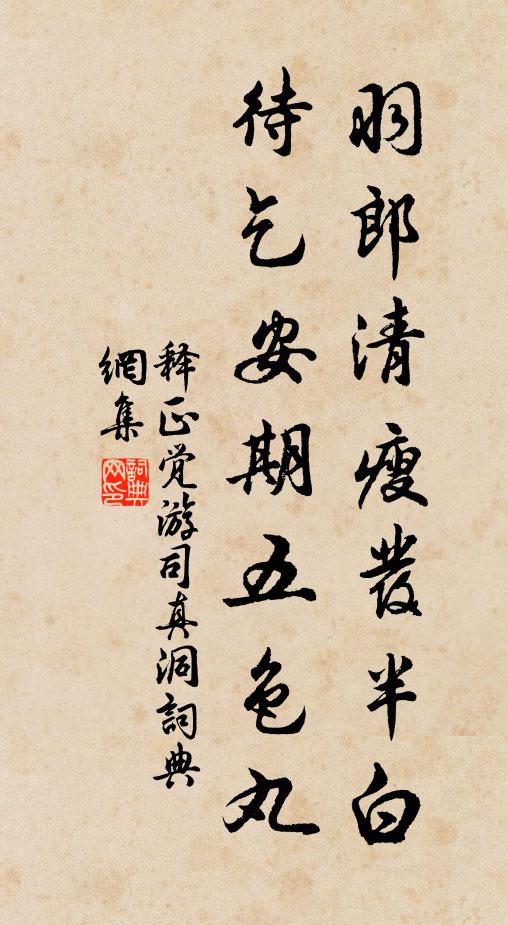 羽郎清瘦發半白
待乞安期五色丸
释正觉游司真洞詞典
網集
詞典网印